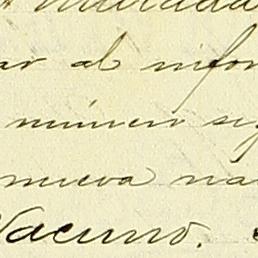 ar al infor
número sig
nueva na
Vacuno.